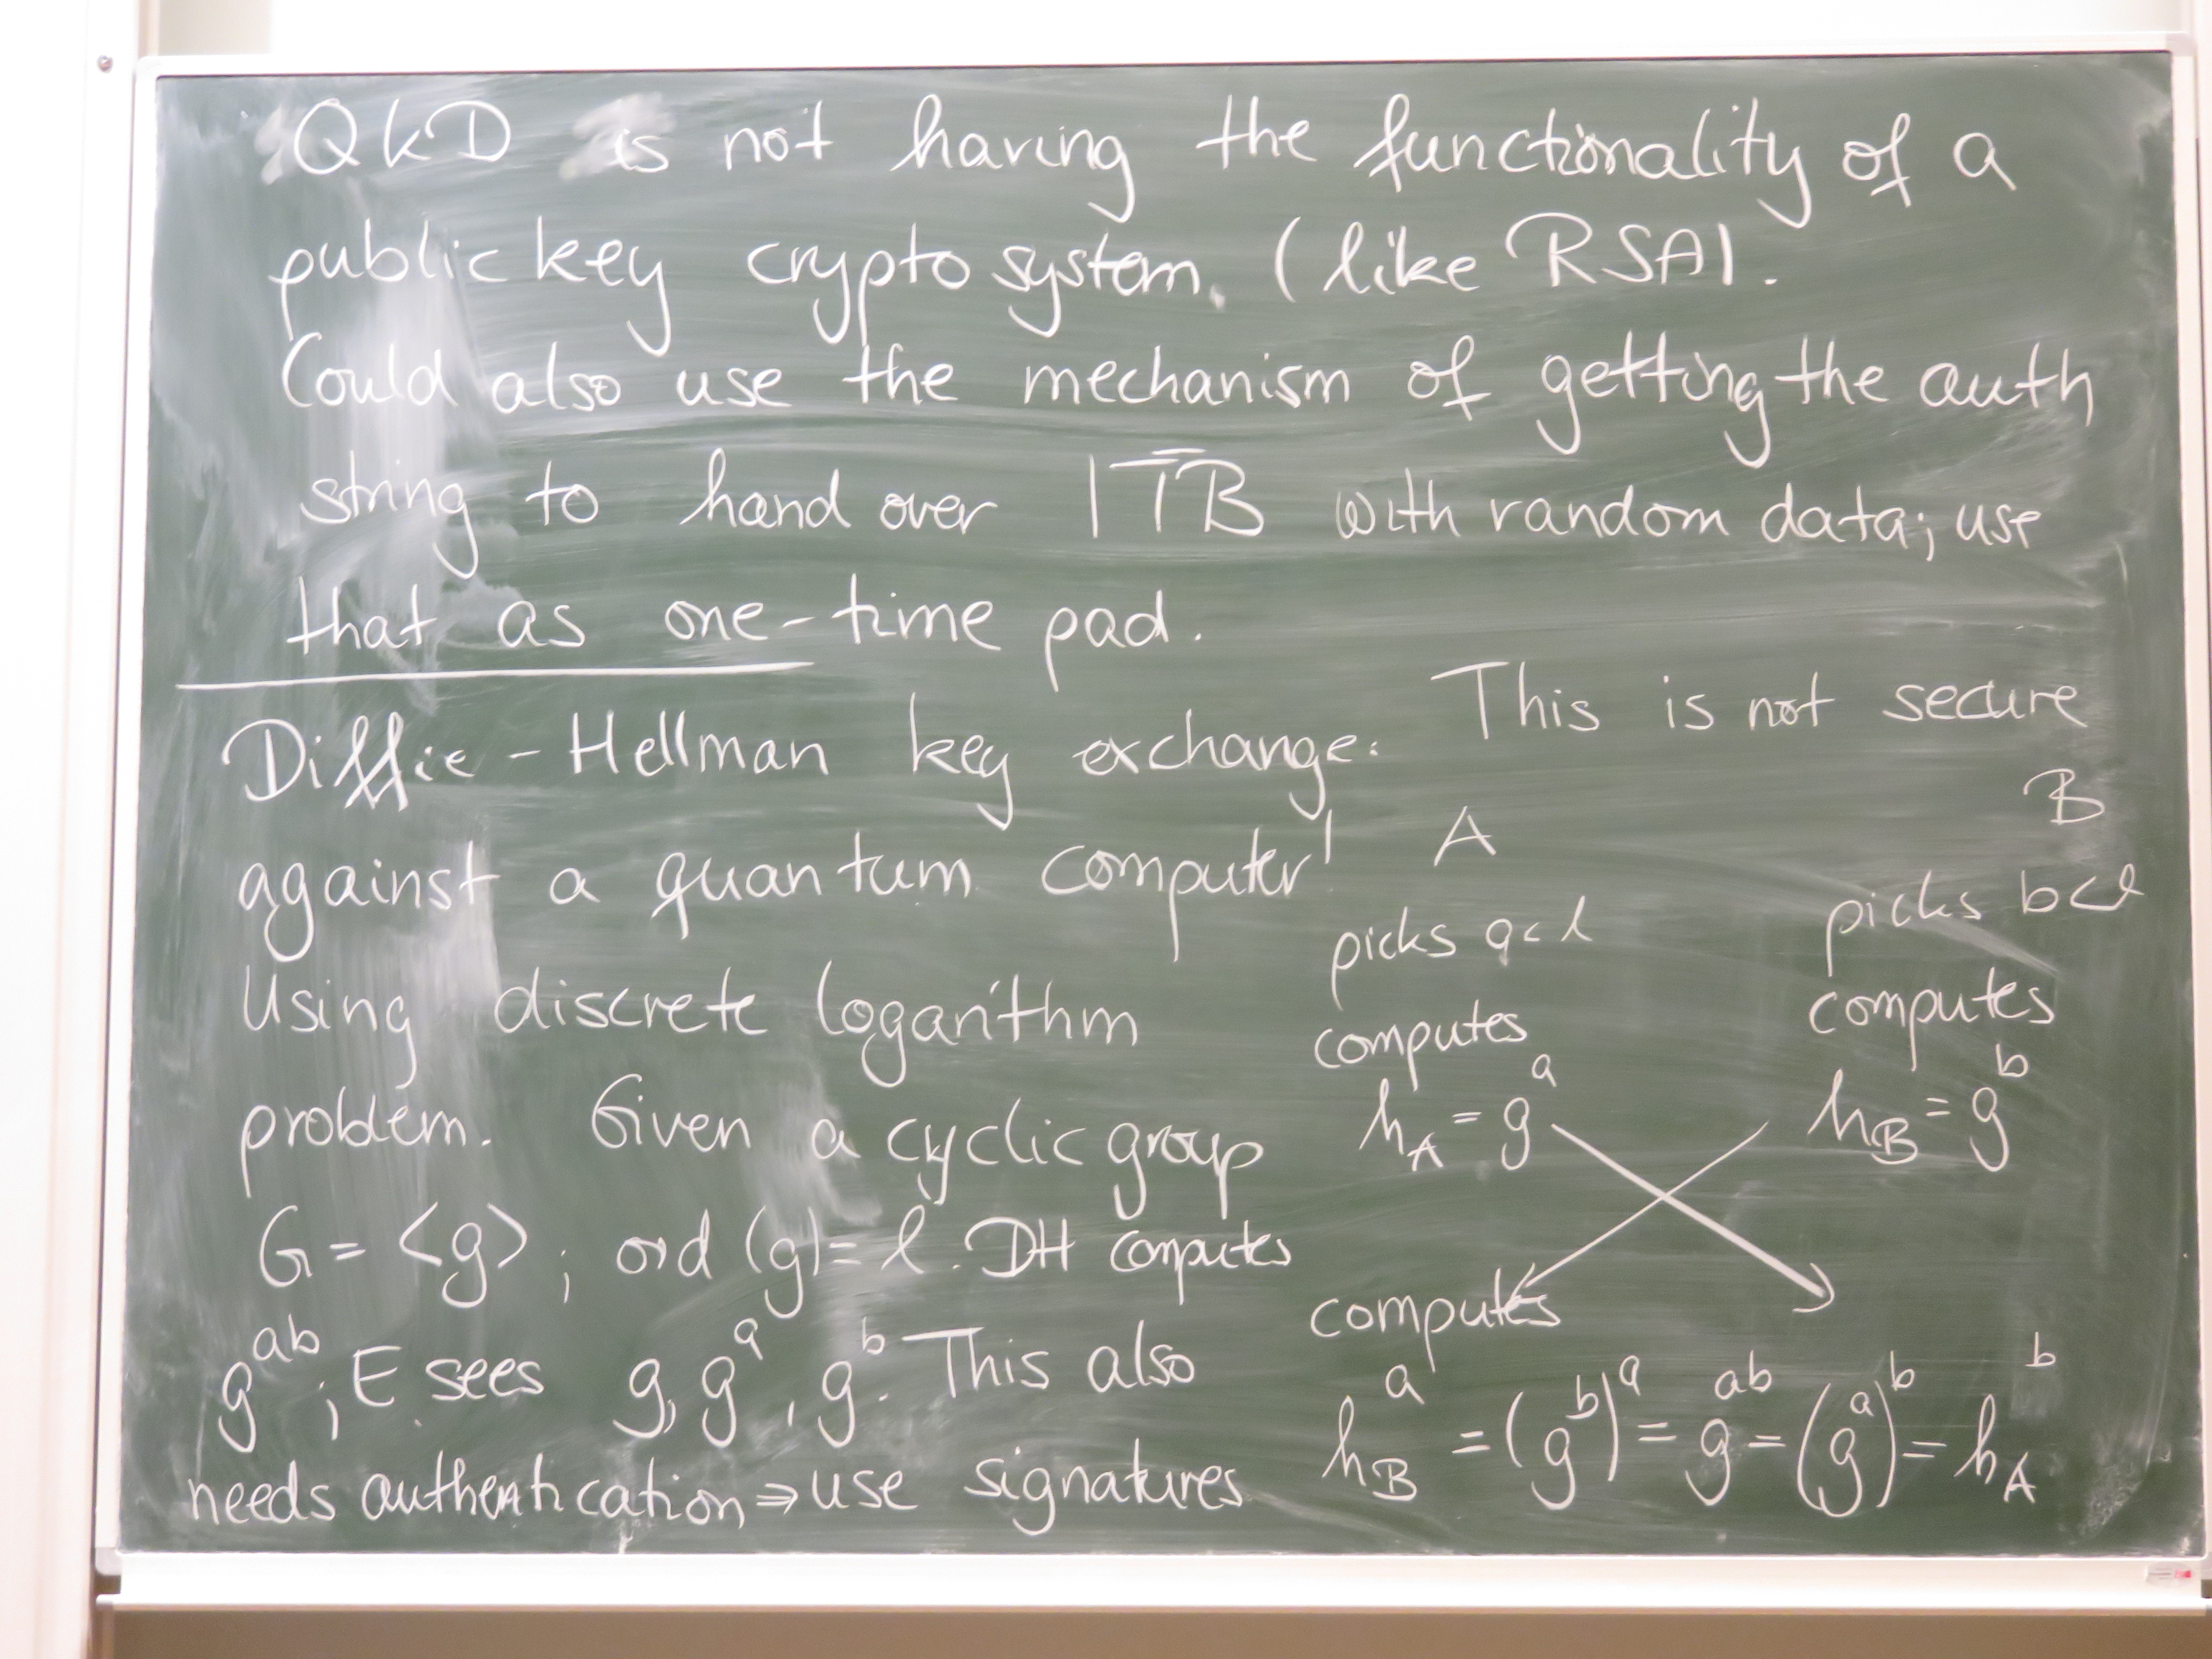 QkD is not having the functionality of a
public key crypto system. (like RSA).
Could also use the mechanism of getting the auth
string to hand over 1TB with random data; use
that as one-time pad.
Diffie-Hellman key exchange: This is not secure
against a quantum computer!
Using discrete logarithm
problem. Given a cyclic group
G = <g>; ord (g) = l. DH computes
g^ab; E sees g, g^a, g^b. This also
needs authentication ⇒ use signatures
A B
picks a < l picks b < l
computes computes
h_A = g^a h_B = g^b
computes
h_B^a = (g^b)^a = g^ab = (g^a)^b = h_A^b